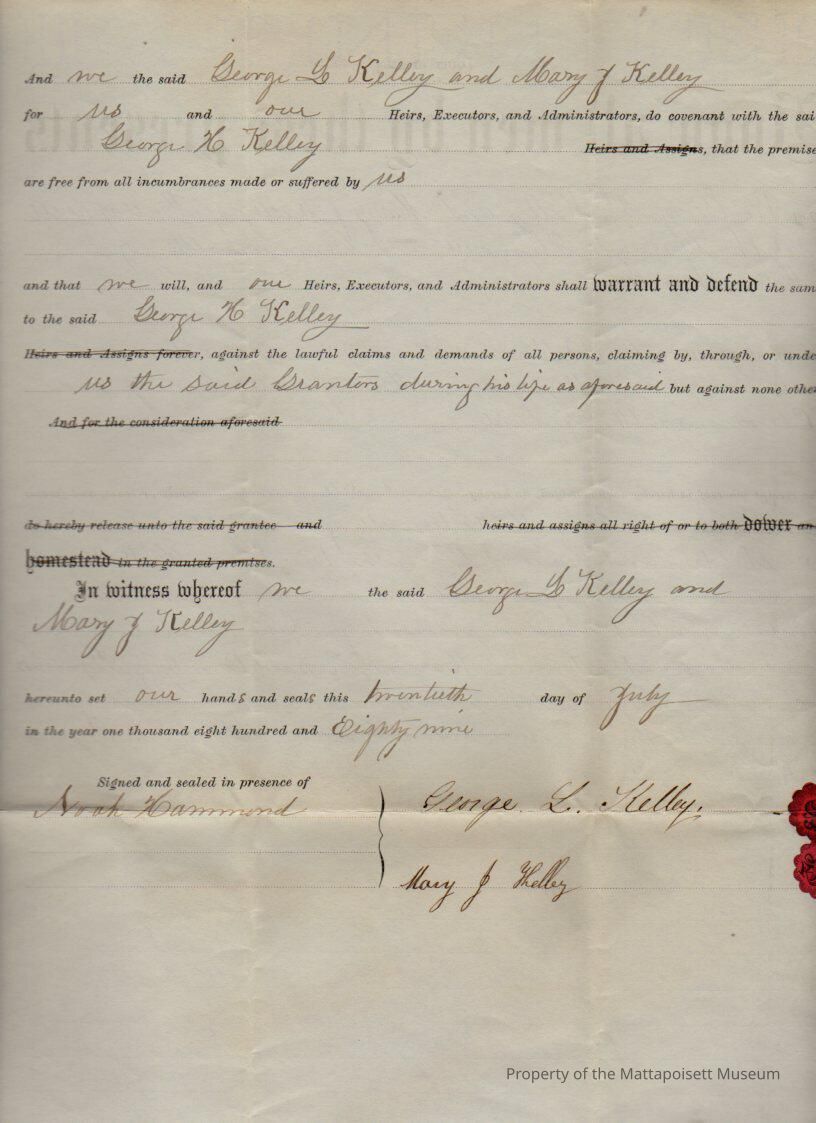 And we the said George L Kelley and Mary J Kelley
for us and our Heirs, Executors, and Administrators, do covenant with the sai
George H Kelley Heirs and Assigns, that the premise
are free from all incumbrances made or suffered by us
and that we will, and our Heirs, Executors, and Administrators shall warrant and defend the sam
to the said George H Kelley
Heirs and Assigns forever, against the lawful claims and demands of all persons, claiming by, through, or unde
us the said Grantors during his life as aforesaid but against none other
And for the consideration aforesaid
do hereby release unto the said grantee and heirs and assigns all right of or to both dower an
homestead in the granted premises.
In witness whereof we the said George L Kelley and
Mary J Kelley
hereunto set our hands and seals this twentieth day of July
in the year one thousand eight hundred and Eighty nine
Signed and sealed in presence of
Noah Hammond George L. Kelley.
Mary J Kelley
Property of the Mattapoisett Museum